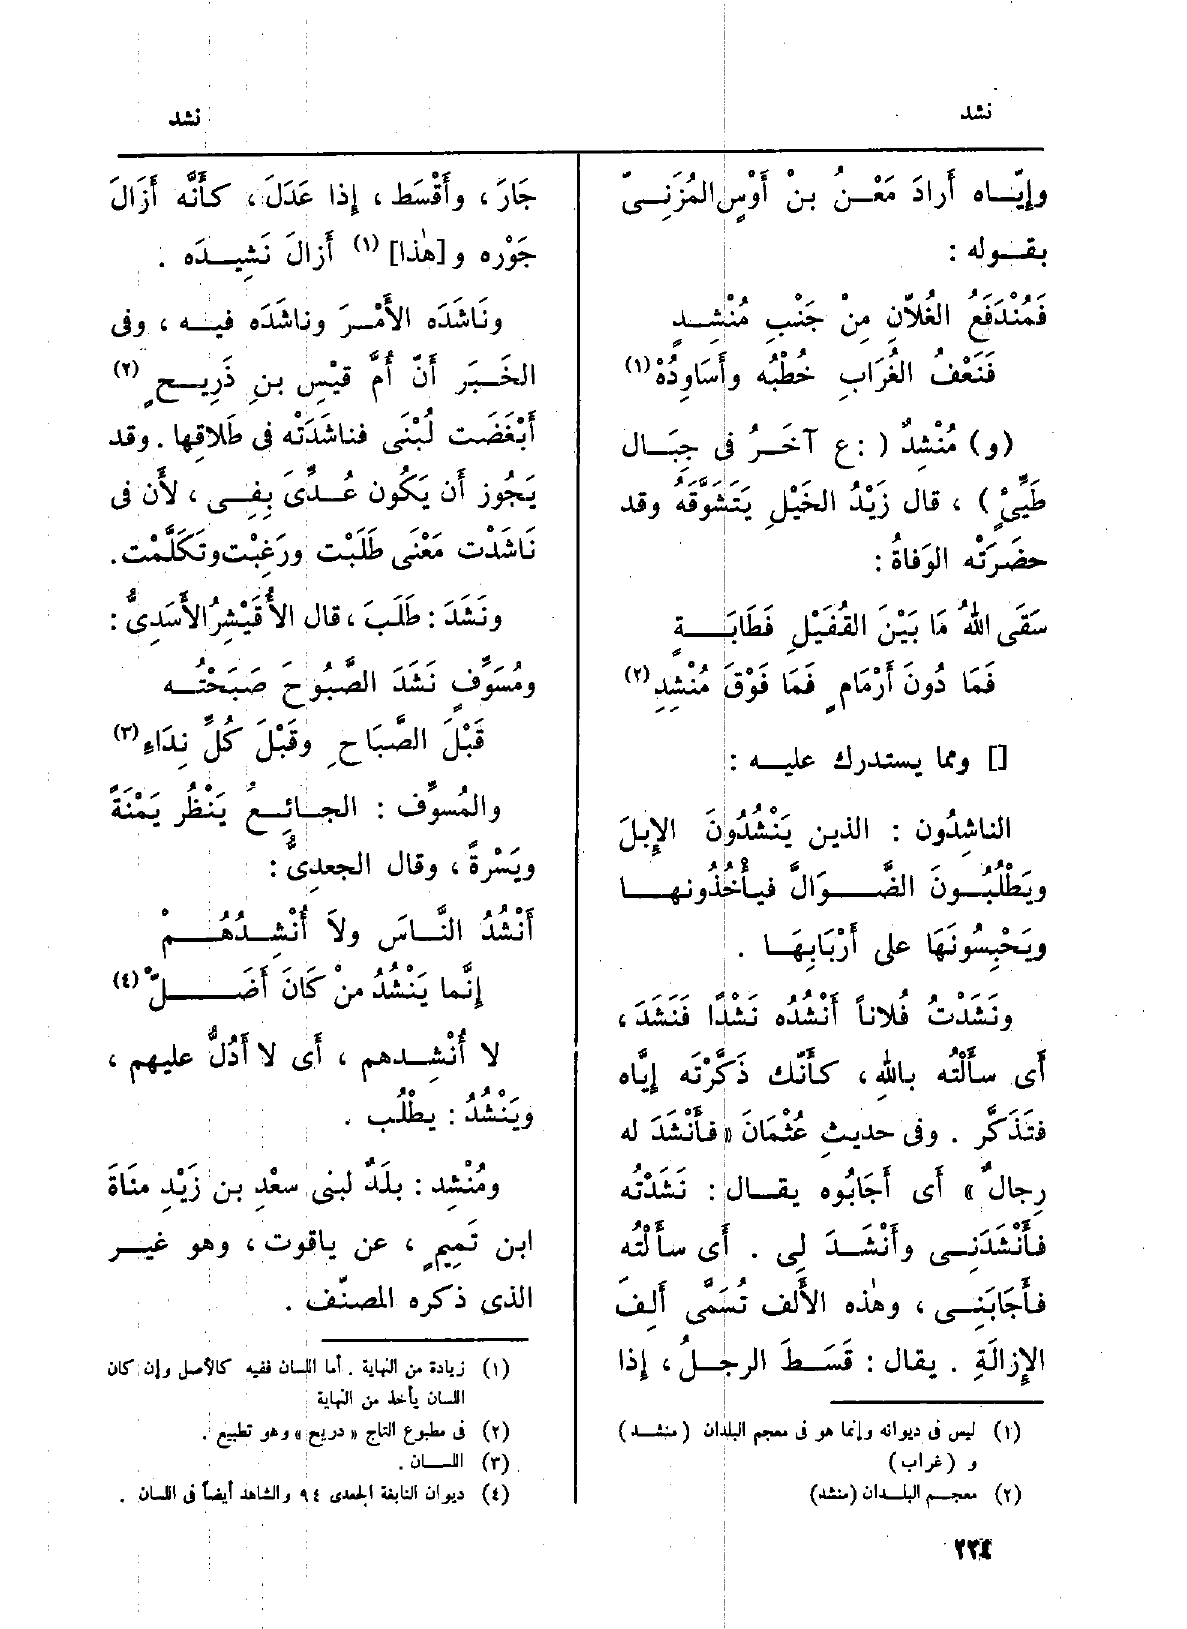 نشد
نشد
وإيّاه أرادَ مَعْنُ بنْ أَوْسٍ المُزَنِىّ
بقوله :
فَمُنْدَفَعُ الغُلاّنِ مِنْ جَنْبِ مُنْشِدٍ
فَنَعْفُ الغُرَابِ خُطْبُه وأَسَاوِدُهْ (١)
(و) مُنْشِدٌ ( :ع آخَرُ فى جِبَال
طَيِّئٍ ) ، قال زَيْدُ الخَيْلِ يَتَشَوَّقُه وقد
حضَرَتْه الوَفاةُ :
سَقَى اللهُ مَا بَيْنَ القُفَيْلِ فَطَابَةٍ
فَمَا دُونَ أَرْمَامٍ فَمَا فَوْقَ مُنْشِدِ (٢)
[] ومما يستدرك عليه :
الناشِدُون : الذين يَنْشُدُونَ الإِبلَ
ويَطْلُبُونَ الضَّوَالَّ فيأْخُذُونها
ويَحْبِسُونَهَا على أَرْبَابِهَا .
ونَشَدْتُ فُلاناً أَنْشُدُه نَشْدًا فَنَشَدَ ،
أَى سأَلْتُه بالله ، كأَنَّك ذَكَّرْتَه إِيَّاه
فتَذَكَّر . وفى حديثِ عُثْمَانَ « فأَنْشَدَ له
رِجالٌ » أَى أَجَابُوه يقال : نَشَدْتُه
فأَنْشَدَنِى وأَنْشَدَ لِى . أَى سأَلْتُه
فأَجَابَنِى ، وهٰذه الأَلف تُسَمَّى أَلِفَ
الإِزالَةِ . يقال : قَسَطَ الرجلُ ، إِذا
(١) ليس فى ديوانه وإنما هو فى معجم البلدان (منشد)
و (غراب)
(٢) معجم البلدان (منشد)
جَارَ ، وأَقْسَط ، إِذا عَدَلَ ، كأَنَّه أَزَالَ
جَوْرَه و[هٰذا] (١) أَزالَ نَشِيدَه .
ونَاشَدَه الأَمْرَ وناشَدَه فيه ، وفى
الخَبَر أَنّ أُمَّ قَيْسِ بنِ ذَرِيحٍ (٢)
أَبْغَضَت لُبْنَى فناشَدَتْه فى طلاقِها . وقد
يَجُوز أَن يَكُون عُدِّىَ بِفِى ، لأَن فى
نَاشَدْت مَعْنَى طَلَبْت ورَغِبْت وتَكَلَّمْت .
ونَشَدَ : طَلَبَ ، قال الأُقَيْشِرُ الأَسَدِىُّ :
ومُسَوِّفٍ نَشَدَ الصَّبُوحَ صَبَحْتُه
قَبْلَ الصَّبَاحِ وقَبْلَ كُلِّ نِدَاءِ (٣)
والمُسوِّف : الجائِعُ يَنْظُر يَمْنَةً
ويَسْرةً ، وقال الجعدِىُّ :
أَنْشُدُ النَّاسَ ولاَ أُنْشِدُهُمْ
إِنَّما يَنْشُدُ منْ كَانَ أَضَلّْ (٤)
لا أُنْشِدهم ، أَى لا أَدُلُّ عليهم ،
ويَنْشُدُ : يطْلُب .
ومُنْشِد : بلَدٌ لبنى سعْدِ بن زَيْدِ مناةَ
ابن تَمِيمٍ ، عن ياقوت ، وهو غير
الذى ذكره المصنّف .
(١) زيادة من النهاية . أما اللسان ففيه كالأصل وإن كان
اللسان يأخذ من النهاية
(٢) فى مطبوع التاج « دريح » وهو تطبيع .
(٣) اللسان .
(٤) ديوان النابغة الجعدى ٩٤ والشاهد أيضاً فى اللسان .
٢٢٤